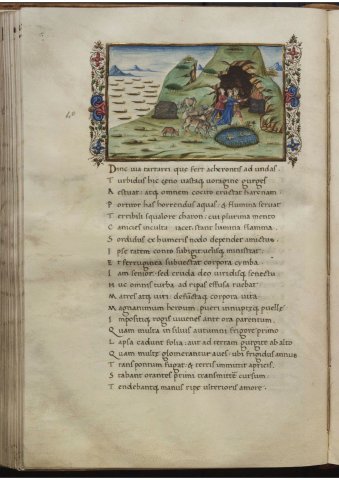 Hinc via tartarei que fert acherontis ad undas
Turbidus hic ceno vastaq; voragine gurges
Aestuat: atq; omnem cocito eructat harenam
Portitor has horrendus aquas: & flumina servat
Terribili squalore charon: cui plurima mento
Canicies inculta iacet: stant lumina flamma.
Sordidus ex humeris nodo dependet amictus.
Ipse ratem conto subigit velisq; ministrat:
Et ferruginea subvectat corpora cymba
Iam senior: sed cruda deo viridisq; senectus
Huc omnis turba ad ripas effusa ruebat
Matres atq; viri: defunctaq; corpora vita
Magnanimum heroum. pueri innupteq; puelle
Impositiq; rogis iuvenes ante ora parentum.
Quam multa in silvis autumni frigore primo
Lapsa cadunt folia: aut ad terram gurgite ab alto
Quam multe glomerantur aves: ubi frigidus annus
Trans pontum fugat: & terris immittit apricis.
Stabant orantes primi transmittere cursum.
Tendebantq; manus ripe ulterioris amore.